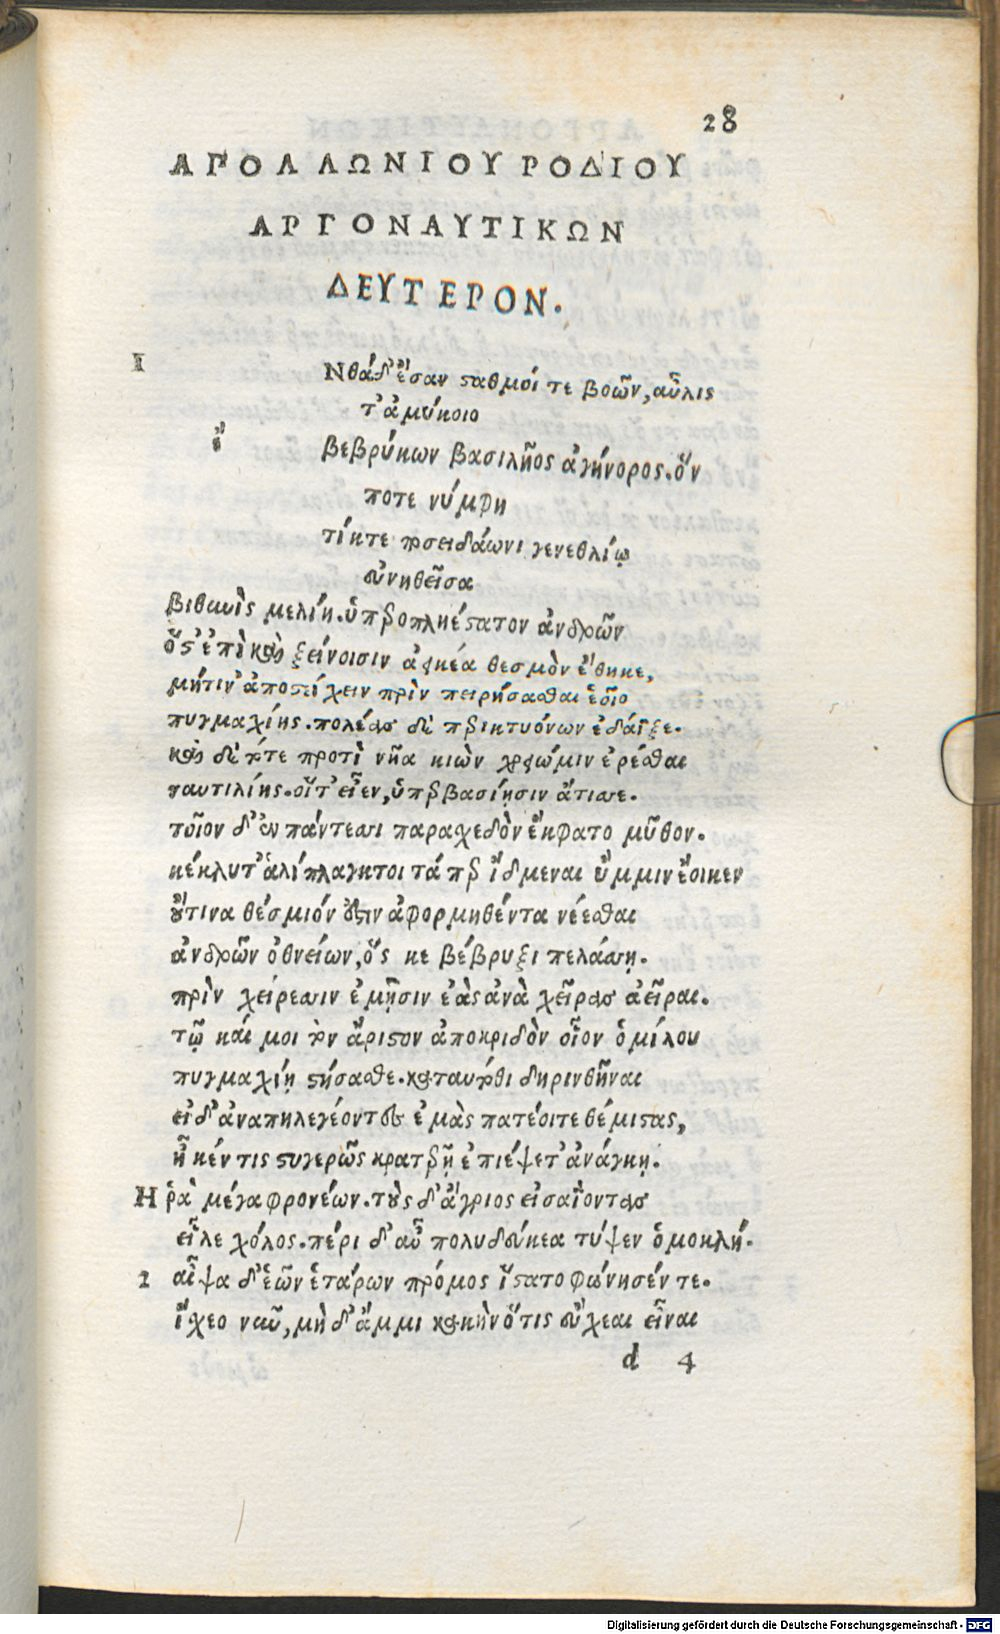 28
ΑΠΟΛΛΩΝΙΟΥ ΡΟΔΙΟΥ
ΑΡΓΟΝΑΥΤΙΚΩΝ
ΔΕΥΤΕΡΟΝ.
1 Νθάδ' ἔσαν σταθμοί τε βοῶν, αὖλις
τ' ἀμύκοιο
ἔ βεβρύκων βασιλῆος ἀγήνορος. ὅν
ποτε νύμφη
τίκτε ποσειδάωνι γενεθλίῳ
εὐνηθεῖσα
βιθυνὶς μελίη. ὑπεροπληέστατον ἀνδρῶν
ὅς τ' ἐπὶ καὶ ξείνοισιν ἀεικέα θεσμὸν ἔθηκε,
μήτιν' ἀποστείχειν πρὶν πειρήσασθαι ἑοῖο
πυγμαχίης. πολέας δὲ περικτυόνων ἐδάϊξε.
καὶ δὲ τότε προτὶ νῆα κιὼν χρειώμιν ἐρέσθαι
ναυτιλίης. οἵ τ' εἶεν, ὑπερβασίησιν ἄτισσε.
τοῖον δ' ἐν πάντεσσι παρασχεδὸν ἔκφατο μῦθον.
κέκλυτ' ἁλίπλαγκτοι τά περ ἴδμεναι ὔμμιν ἔοικεν
οὔτινα θέσμιόν ἐστιν ἀφορμηθέντα νέεσθαι
ἀνδρῶν ὀθνείων, ὅς κε βέβρυξι πελάσσῃ.
πρὶν χείρεσσιν ἐμῇσιν ἑὰς ἀνὰ χεῖρας ἀεῖραι.
τῷ καί μοι τὸν ἄριστον ἀποκριδὸν οἶον ὁμίλου
πυγμαχίῃ στήσασθε. καταυτόθι δηρινθῆναι
εἰ δ' ἀναπηλεγέοντες ἐμὰς πατέοιτε θέμιστας,
ἦ κέν τις στυγερῶς κρατερῇ ἐπιέψετ' ἀνάγκῃ.
Η ῥὰ μέγα φρονέων. τοὺς δ' ἄγριος εἰσαΐοντας
εἷλε χόλος. πέρι δ' αὖ πολυδεύκεα τύψεν ὁμοκλή.
1 αἶψα δ' ἑῶν ἑτάρων πρόμος ἵστατο φώνησέν τε.
ἴσχεο νῦν, μὴ δ' ἄμμι κακὴν ὅτις εὔχεαι εἶναι
d 4
Digitalisierung gefördert durch die Deutsche Forschungsgemeinschaft - DFG